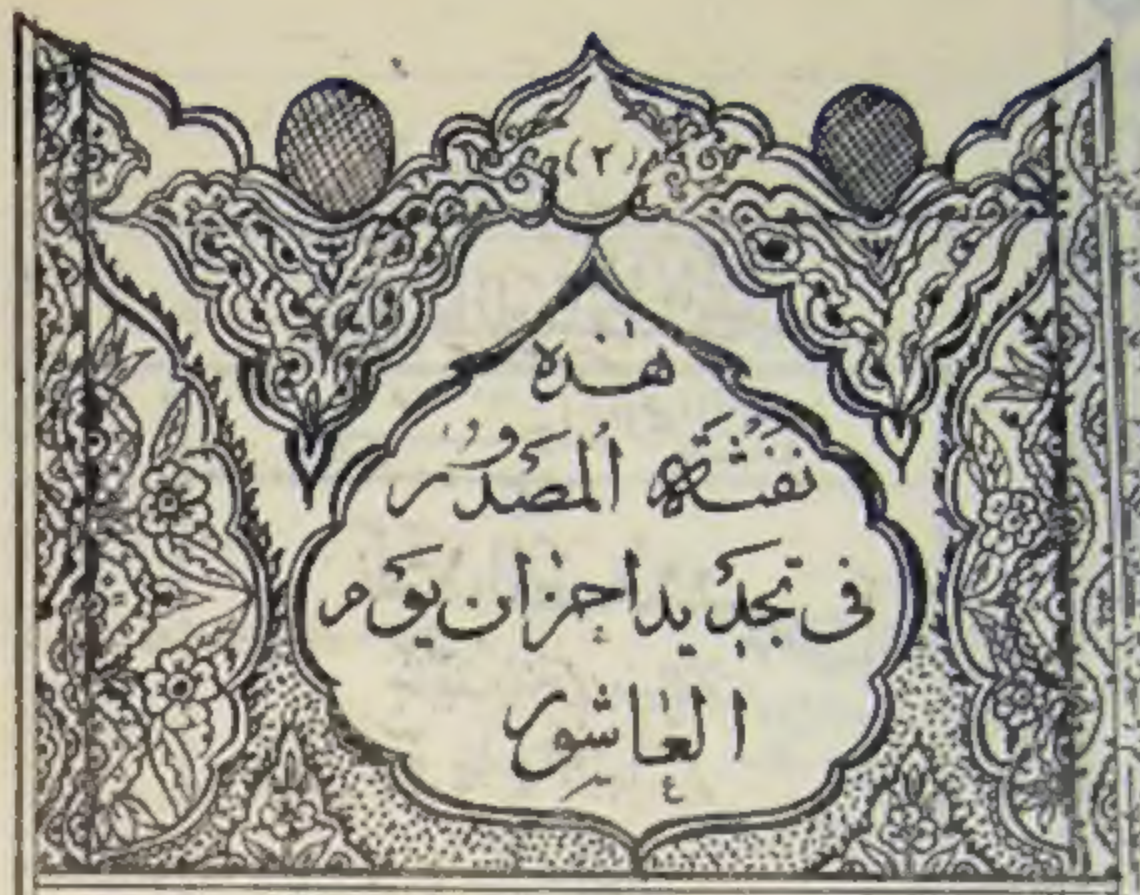 (٢)
هذه
نفثة المصدور
في تجديد احزان يوم
العاشور